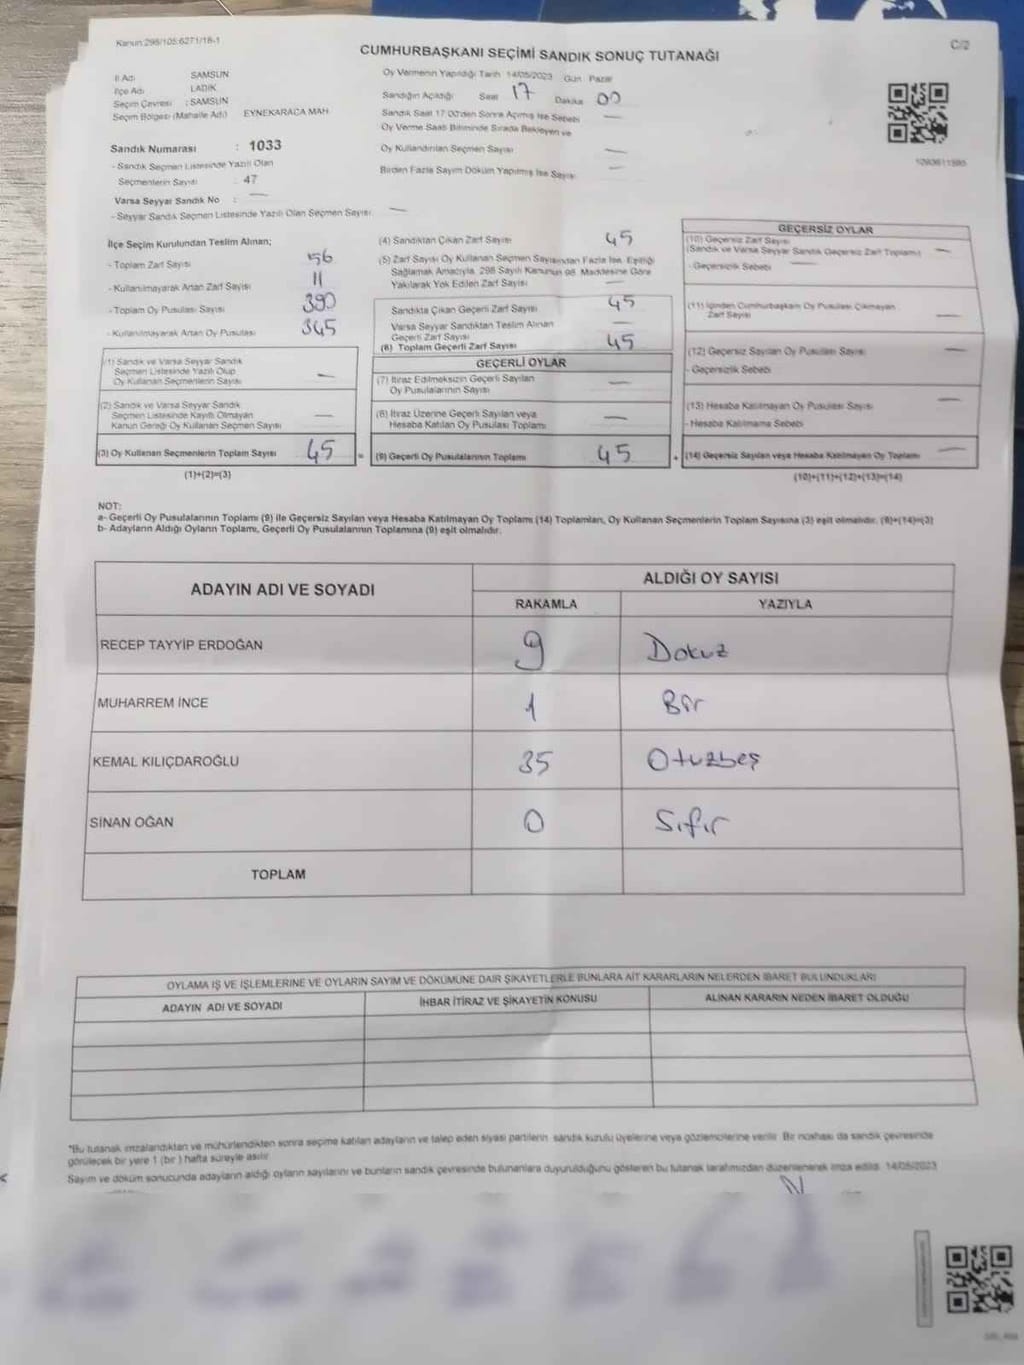 Kanun:298/105:6271/18-1
C/2
CUMHURBAŞKANI SEÇİMİ SANDIK SONUÇ TUTANAĞI
İl Adı SAMSUN
İlçe Adı LADİK
Seçim Çevresi : SAMSUN
Seçim Bölgesi (Mahalle Adı) EYNEKARACA MAH
Sandık Numarası : 1033
- Sandık Seçmen Listesinde Yazılı Olan
Seçmenlerin Sayısı : 47
Varsa Seyyar Sandık No : —
- Seyyar Sandık Seçmen Listesinde Yazılı Olan Seçmen Sayısı: —
Oy Vermenin Yapıldığı Tarih 14/05/2023 Gün Pazar
Sandığın Açıldığı Saat 17 Dakika 00
Sandık Saat 17:00'den Sonra Açılmış İse Sebebi —
Oy Verme Saati Bitiminde Sırada Bekleyen ve
Oy Kullandırılan Seçmen Sayısı —
Birden Fazla Sayım Döküm Yapılmış İse Sayısı —
İlçe Seçim Kurulundan Teslim Alınan;
- Toplam Zarf Sayısı 56
- Kullanılmayarak Artan Zarf Sayısı 11
- Toplam Oy Pusulası Sayısı 390
- Kullanılmayarak Artan Oy Pusulası 345
(1) Sandık ve Varsa Seyyar Sandık
Seçmen Listesinde Yazılı Olup
Oy Kullanan Seçmenlerin Sayısı —
(2) Sandık ve Varsa Seyyar Sandık
Seçmen Listesinde Kayıtlı Olmayan
Kanun Gereği Oy Kullanan Seçmen Sayısı —
(3) Oy Kullanan Seçmenlerin Toplam Sayısı 45 =
(1)+(2)=(3)
(4) Sandıktan Çıkan Zarf Sayısı 45
(5) Zarf Sayısı Oy Kullanan Seçmen Sayısından Fazla İse, Eşitliği
Sağlamak Amacıyla, 298 Sayılı Kanunun 98. Maddesine Göre
Yakılarak Yok Edilen Zarf Sayısı —
Sandıkta Çıkan Geçerli Zarf Sayısı 45
Varsa Seyyar Sandıktan Teslim Alınan
Geçerli Zarf Sayısı —
(6) Toplam Geçerli Zarf Sayısı 45
GEÇERLİ OYLAR
(7) İtiraz Edilmeksizin Geçerli Sayılan
Oy Pusulalarının Sayısı —
(8) İtiraz Üzerine Geçerli Sayılan veya
Hesaba Katılan Oy Pusulası Toplamı —
(9) Geçerli Oy Pusulalarının Toplamı 45 +
GEÇERSİZ OYLAR
(10) Geçersiz Zarf Sayısı
(Sandık ve Varsa Seyyar Sandık Geçersiz Zarf Toplamı) —
- Geçersizlik Sebebi —
(11) İçinden Cumhurbaşkanı Oy Pusulası Çıkmayan
Zarf Sayısı —
(12) Geçersiz Sayılan Oy Pusulası Sayısı —
- Geçersizlik Sebebi
(13) Hesaba Katılmayan Oy Pusulası Sayısı —
- Hesaba Katılmama Sebebi
(14) Geçersiz Sayılan veya Hesaba Katılmayan Oy Toplamı —
(10)+(11)+(12)+(13)=(14)
NOT:
a- Geçerli Oy Pusulalarının Toplamı (9) ile Geçersiz Sayılan veya Hesaba Katılmayan Oy Toplamı (14) Toplamları, Oy Kullanan Seçmenlerin Toplam Sayısına (3) eşit olmalıdır. (9)+(14)=(3)
b- Adayların Aldığı Oyların Toplamı, Geçerli Oy Pusulalarının Toplamına (9) eşit olmalıdır.
ADAYIN ADI VE SOYADI ALDIĞI OY SAYISI
RAKAMLA YAZIYLA
RECEP TAYYİP ERDOĞAN 9 Dokuz
MUHARREM İNCE 1 Bir
KEMAL KILIÇDAROĞLU 35 Otuzbeş
SİNAN OĞAN 0 Sıfır
TOPLAM
OYLAMA İŞ VE İŞLEMLERİNE VE OYLARIN SAYIM VE DÖKÜMÜNE DAİR ŞİKAYETLERLE BUNLARA AİT KARARLARIN NELERDEN İBARET BULUNDUKLARI
ADAYIN ADI VE SOYADI İHBAR İTİRAZ VE ŞİKAYETİN KONUSU ALINAN KARARIN NEDEN İBARET OLDUĞU
*Bu tutanak imzalandıktan ve mühürlendikten sonra seçime katılan adayların ve talep eden siyasi partilerin sandık kurulu üyelerine veya gözlemcilerine verilir. Bir nüshası da sandık çevresinde
görülecek bir yere 1 (bir ) hafta süreyle asılır.
Sayım ve döküm sonucunda adayların aldığı oyların sayılarını ve bunların sandık çevresinde bulunanlara duyurulduğunu gösteren bu tutanak tarafımızdan düzenlenerek imza edildi. 14/05/2023